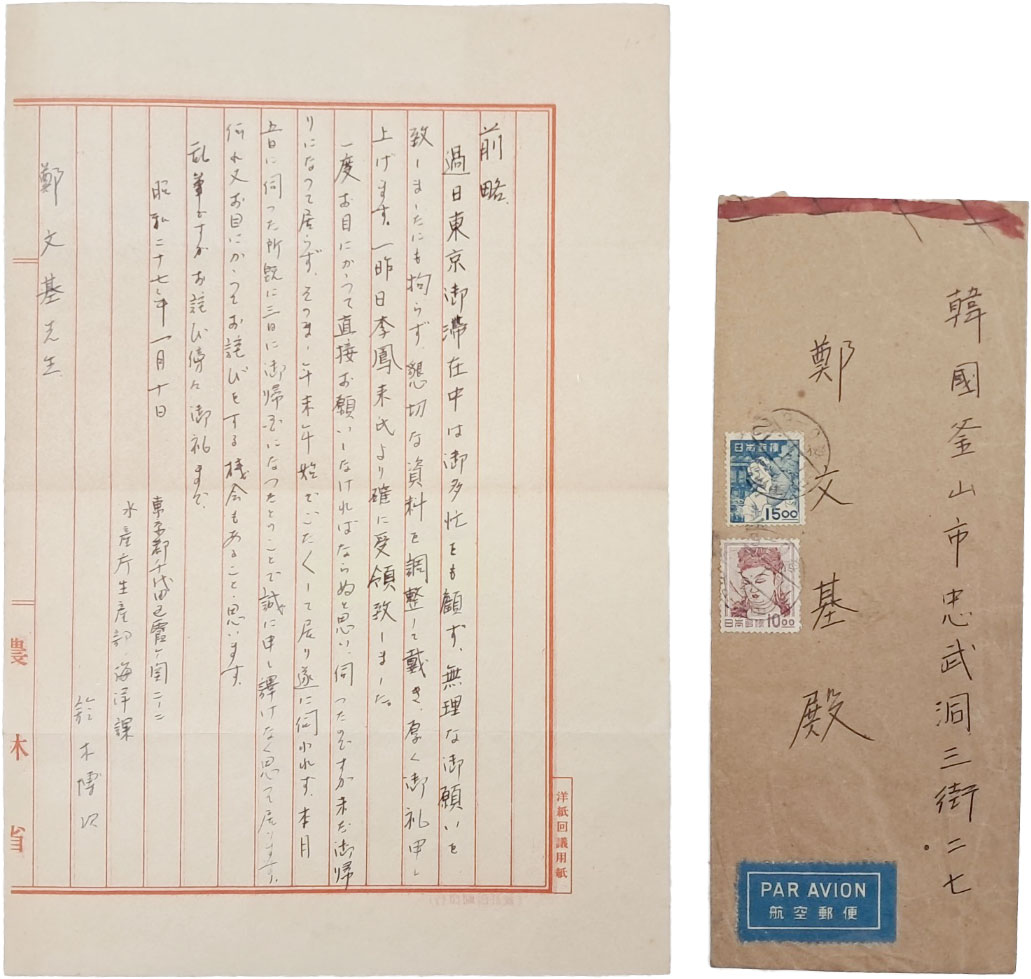 前略、
過日東京御滞在中は御多忙をも顧ず、無理な御願いを
致しましたにも拘らず、懇切な資料を調整して戴き、厚く御礼申し
上げます。一昨日李鳳来氏より確に受領致しました。
一度お目にかゝつて直接お願いしなければならぬと思い、伺つたのですが未だ御帰
りになつて居らず、そのまゝ年末年始でごたくして居り遂に伺われず、本月
五日に伺つた所既に三日に御帰国になつたとのことで誠に申し訳けなく思つて居ります。
何れ又お目にかゝつてお詫びをする機会もあることゝ思います。
乱筆ですがお詫び傍々御礼まで、
昭和二十七年一月十日
東京都千代田区霞ヶ関二ノ二
水産庁生産部海洋課
鈴木博次
鄭文基先生
農林省
洋紙回議用紙
韓國釜山市忠武洞三街二七
鄭文基殿
日本郵便
1500
日本郵便 10.00
PAR AVION
航空郵便